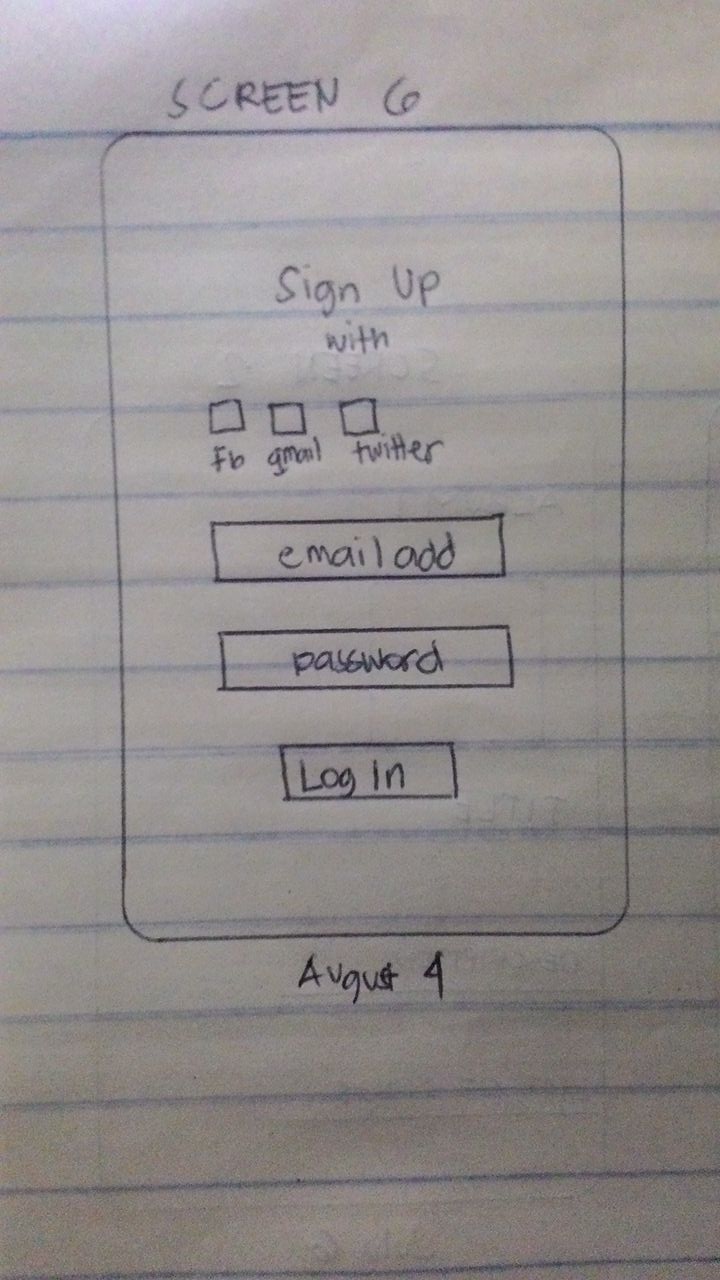 SCREEN 6
Sign Up
with
Fb gmail twitter
email add
password
Log In
August 4